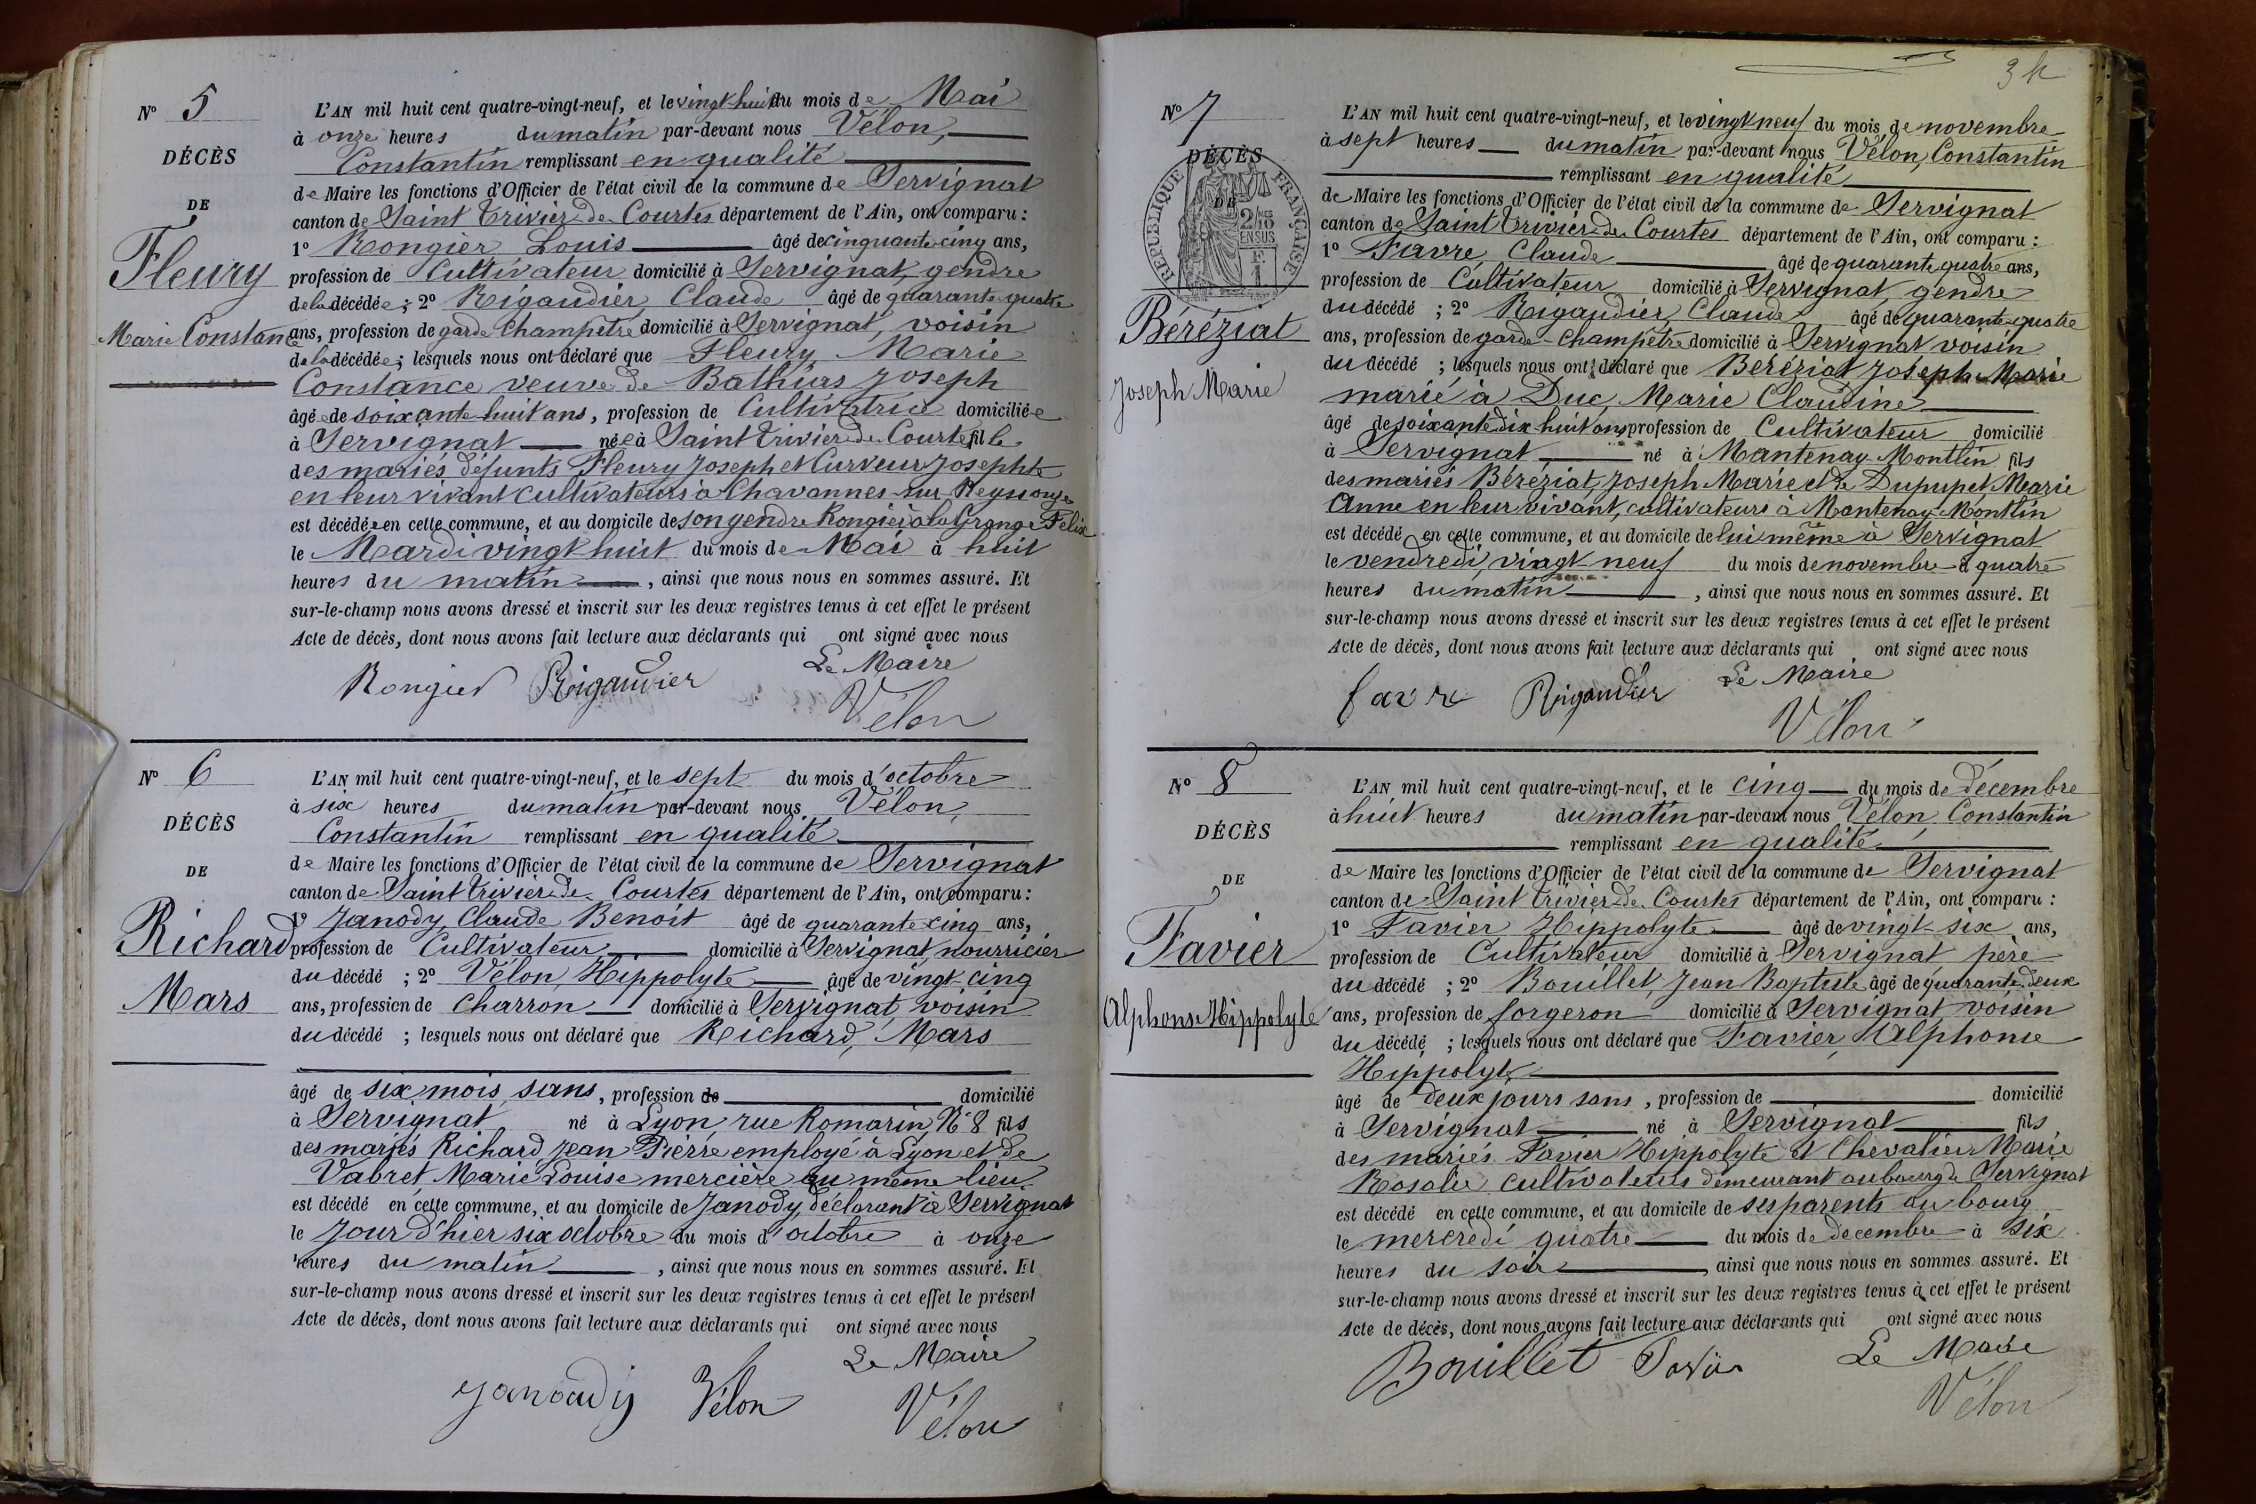 N° 5
DÉCÈS
DE
Fleury
Marie Constance
L'AN mil huit cent quatre-vingt-neuf, et le vingt huit du mois de Mai
à onze heures du matin par-devant nous Vélon,
Constantin remplissant en qualité
de Maire les fonctions d'Officier de l'état civil de la commune de Servignat
canton de Saint Trivier de Courtes département de l'Ain, ont comparu :
1° Rongier Louis âgé de cinquante cinq ans,
profession de Cultivateur domicilié à Servignat, gendre
de la décédée ; 2° Rigaudier Claude âgé de quarante quatre
ans, profession de garde Champêtre domicilié à Servignat, voisin
de la décédée ; lesquels nous ont déclaré que Fleury Marie
Constance veuve de Bathias Joseph
âgée de soixante huit ans, profession de Cultivatrice domiciliée
à Servignat née à Saint Trivier de Courtes fille
des mariés défunts Fleury Joseph et Curveur Josephte
en leur vivant cultivateurs à Chavannes sur Reyssouze
est décédée en cette commune, et au domicile de son gendre Rongier à la Grange Felix
le Mardi vingt huit du mois de Mai à huit
heures du matin , ainsi que nous nous en sommes assuré. Et
sur-le-champ nous avons dressé et inscrit sur les deux registres tenus à cet effet le présent
Acte de décès, dont nous avons fait lecture aux déclarants qui ont signé avec nous
Le Maire
Rongier Rigaudier
Vélon
N° 6
DÉCÈS
DE
Richard
Mars
L'AN mil huit cent quatre-vingt-neuf, et le sept du mois d'octobre
à six heures du matin par-devant nous Vélon,
Constantin remplissant en qualité
de Maire les fonctions d'Officier de l'état civil de la commune de Servignat
canton de Saint Trivier de Courtes département de l'Ain, ont comparu :
1° Janody, Claude Benoit âgé de quarante cinq ans,
profession de Cultivateur domicilié à Servignat, nourricier
du décédé ; 2° Vélon, Hippolyte âgé de vingt-cinq
ans, profession de charron domicilié à Servignat, voisin
du décédé ; lesquels nous ont déclaré que Richard, Mars
âgé de six mois, sans, profession de domicilié
à Servignat né à Lyon, rue Romarin, N° 8 fils
des mariés Richard, Jean Pierre employé à Lyon et de
Vabret Marie Louise mercière au même lieu
est décédé en cette commune, et au domicile de Janody, déclarant à Servignat
le Jour d'hier six octobre du mois d'octobre à onze
heures du matin , ainsi que nous nous en sommes assuré. Et
sur-le-champ nous avons dressé et inscrit sur les deux registres tenus à cet effet le présent
Acte de décès, dont nous avons fait lecture aux déclarants qui ont signé avec nous
Le Maire
Janoudy Vélon
Vélon
N° 7
DÉCÈS
DE
RÉPUBLIQUE FRANÇAISE
2/10 EN SUS
F. 1
Béréziat
Joseph Marie
L'AN mil huit cent quatre-vingt-neuf, et le vingt neuf du mois de novembre
à sept heures du matin par-devant nous Vélon, Constantin
remplissant en qualité
de Maire les fonctions d'Officier de l'état civil de la commune de Servignat
canton de Saint Trivier de Courtes département de l'Ain, ont comparu :
1° Favre, Claude âgé de quarante quatre ans,
profession de Cultivateur domicilié à Servignat, gendre
du décédé ; 2° Rigaudier Claude âgé de quarante quatre
ans, profession de garde-Champêtre domicilié à Servignat voisin
du décédé ; lesquels nous ont déclaré que Béréziat Joseph Marie
marié à Duc, Marie Claudine
âgé de soixante dix huit ans profession de Cultivateur domicilié
à Servignat, né à Mantenay-Montlin fils
des mariés Béréziat, Joseph Marie et de Dupupet Marie
Anne en leur vivant, cultivateurs à Mantenay-Montlin
est décédé en cette commune, et au domicile de lui même à Servignat
le vendredi, vingt neuf du mois de novembre à quatre
heures du matin , ainsi que nous nous en sommes assuré. Et
sur-le-champ nous avons dressé et inscrit sur les deux registres tenus à cet effet le présent
Acte de décès, dont nous avons fait lecture aux déclarants qui ont signé avec nous
Le Maire
favre Rigaudier
Vélon
N° 8
DÉCÈS
DE
Favier
Alphonse Hippolyte
L'AN mil huit cent quatre-vingt-neuf, et le cinq du mois de Décembre
à huit heures du matin par-devant nous Vélon, Constantin
remplissant en qualité
de Maire les fonctions d'Officier de l'état civil de la commune de Servignat
canton de Saint Trivier de Courtes département de l'Ain, ont comparu :
1° Favier Hippolyte âgé de vingt-six ans,
profession de Cultivateur domicilié à Servignat père
du décédé ; 2° Bouillet, Jean Baptiste âgé de quarante deux
ans, profession de forgeron domicilié à Servignat, voisin
du décédé ; lesquels nous ont déclaré que Favier, Alphonse
Hippolyte
âgé de deux jours sans , profession de domicilié
à Servignat né à Servignat fils
des mariés Favier Hippolyte et Chevalier Marie
Rosalie cultivateurs demeurant au bourg de Servignat
est décédé en cette commune, et au domicile de ses parents au bourg
le mercredi quatre du mois de décembre à six
heures du soir , ainsi que nous nous en sommes assuré. Et
sur-le-champ nous avons dressé et inscrit sur les deux registres tenus à cet effet le présent
Acte de décès, dont nous avons fait lecture aux déclarants qui ont signé avec nous
Le Maire
Bouillet Favier
Vélon